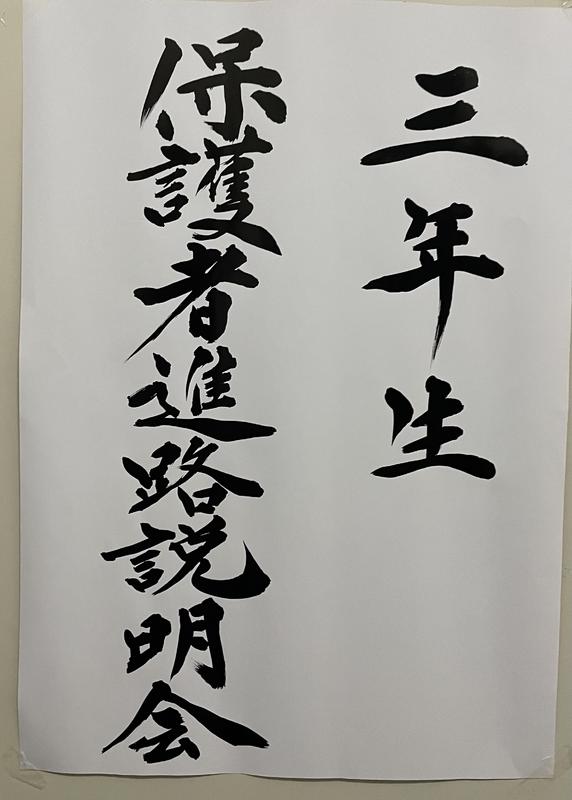 三年生
保護者進路説明会